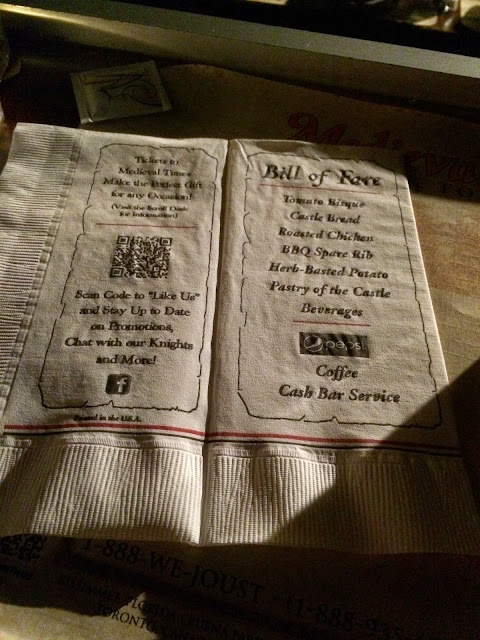 Tickets to
Medieval Times
Make the Perfect Gift
for any Occasion!
(Visit the Scroll Desk
for Information)
Scan Code to "Like Us"
and Stay Up to Date
on Promotions,
Chat with our Knights
and More!
f
Printed in the U.S.A.
Bill of Fare
Tomato Bisque
Castle Bread
Roasted Chicken
BBQ Spare Rib
Herb-Basted Potato
Pastry of the Castle
Beverages
pepsi
Coffee
Cash Bar Service
1-888-WE-JOUST
(1-888-935
KISSIMMEE, FLORIDA • BUENA PARK
TORONTO